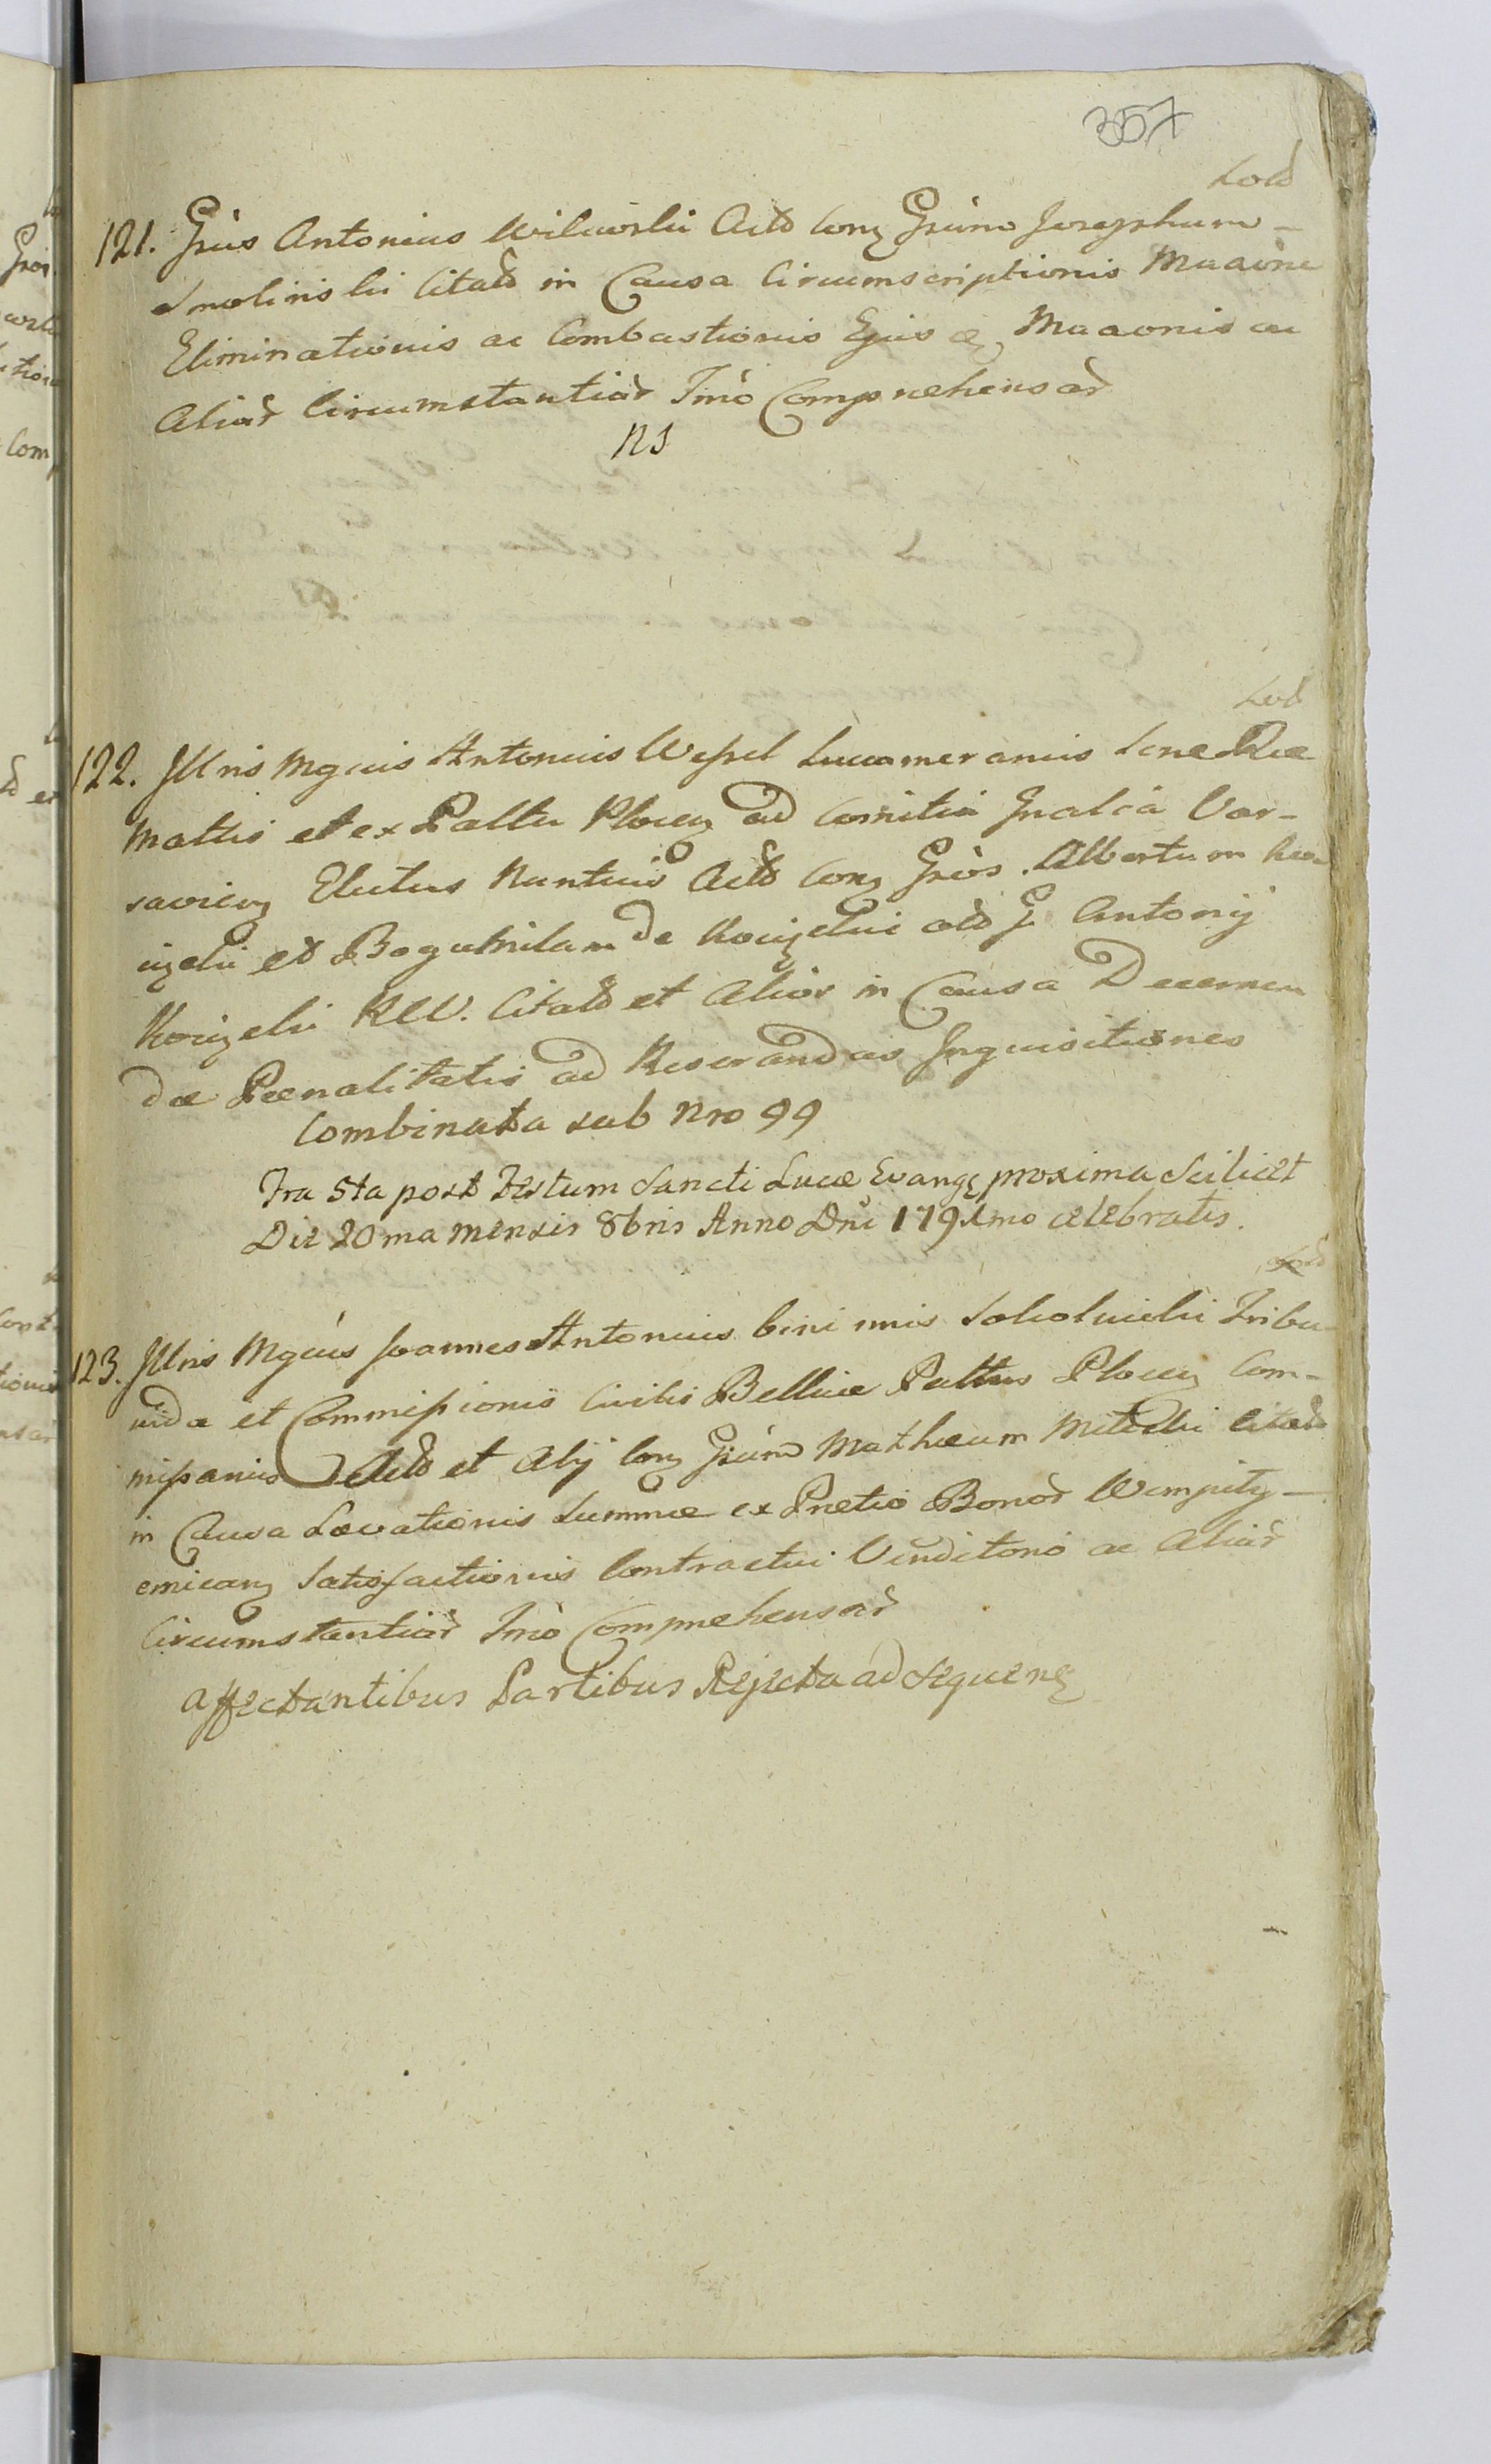 357
121. Gsus Antonius Wilkorski Actd Conz Gsum Josephum -
Smolinski Citatd in Causa Circumscriptionis
Eliminationis ac Combustionis Ejus
Aliar Circumstantiar Tmo Comprehensar
NS
122. Illris Mgcus Antonius Wessel Succamerarius Terrae
et ex Palttu Plocen ad Comitia Gnalia Var-
savien Electus Nuntius Actd Conz Gsos Albertum
et Bogumilam de
Citatd et Alior in Causa Decernen
dae Paenalitatis ad Reserandas Inquisitiones
Combinata sub Nro 99
Fra 5ta post Festum Sancti Lucae Evang proxima Scilicet
Die 20ma Mensis 8bris Anno Dni 1791mo celebratis.
123. Illris Mgcus Joannes Antonius bini nnis Sokolnicki Tribu-
et Commissionis Civilis Bellicae Palttus Plocen Com-
missarius Actd et Alij Conz Gsum Mathaeum Citatd
in Causa Levationis Summae ex Pretio Bonor
Satisfactionis Contractui Venditorio ac Aliar
Circumstantiar Tmo Comprehensar
Affectantibus Partibus Rejecta ad Sequenz